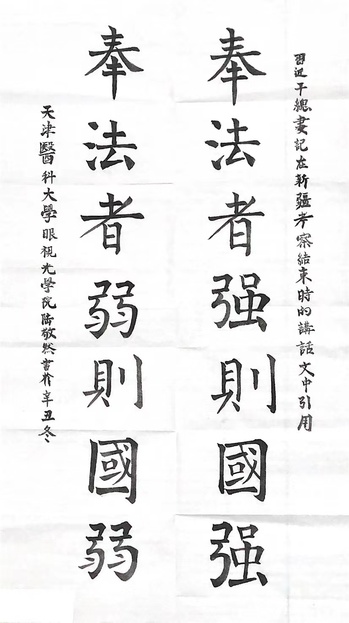 習近平總書記在新疆考察結束時的講話文中引用
奉法者强則國强
奉法者弱則國弱
天津醫科大學眼視光學院陈敬然書於辛丑冬